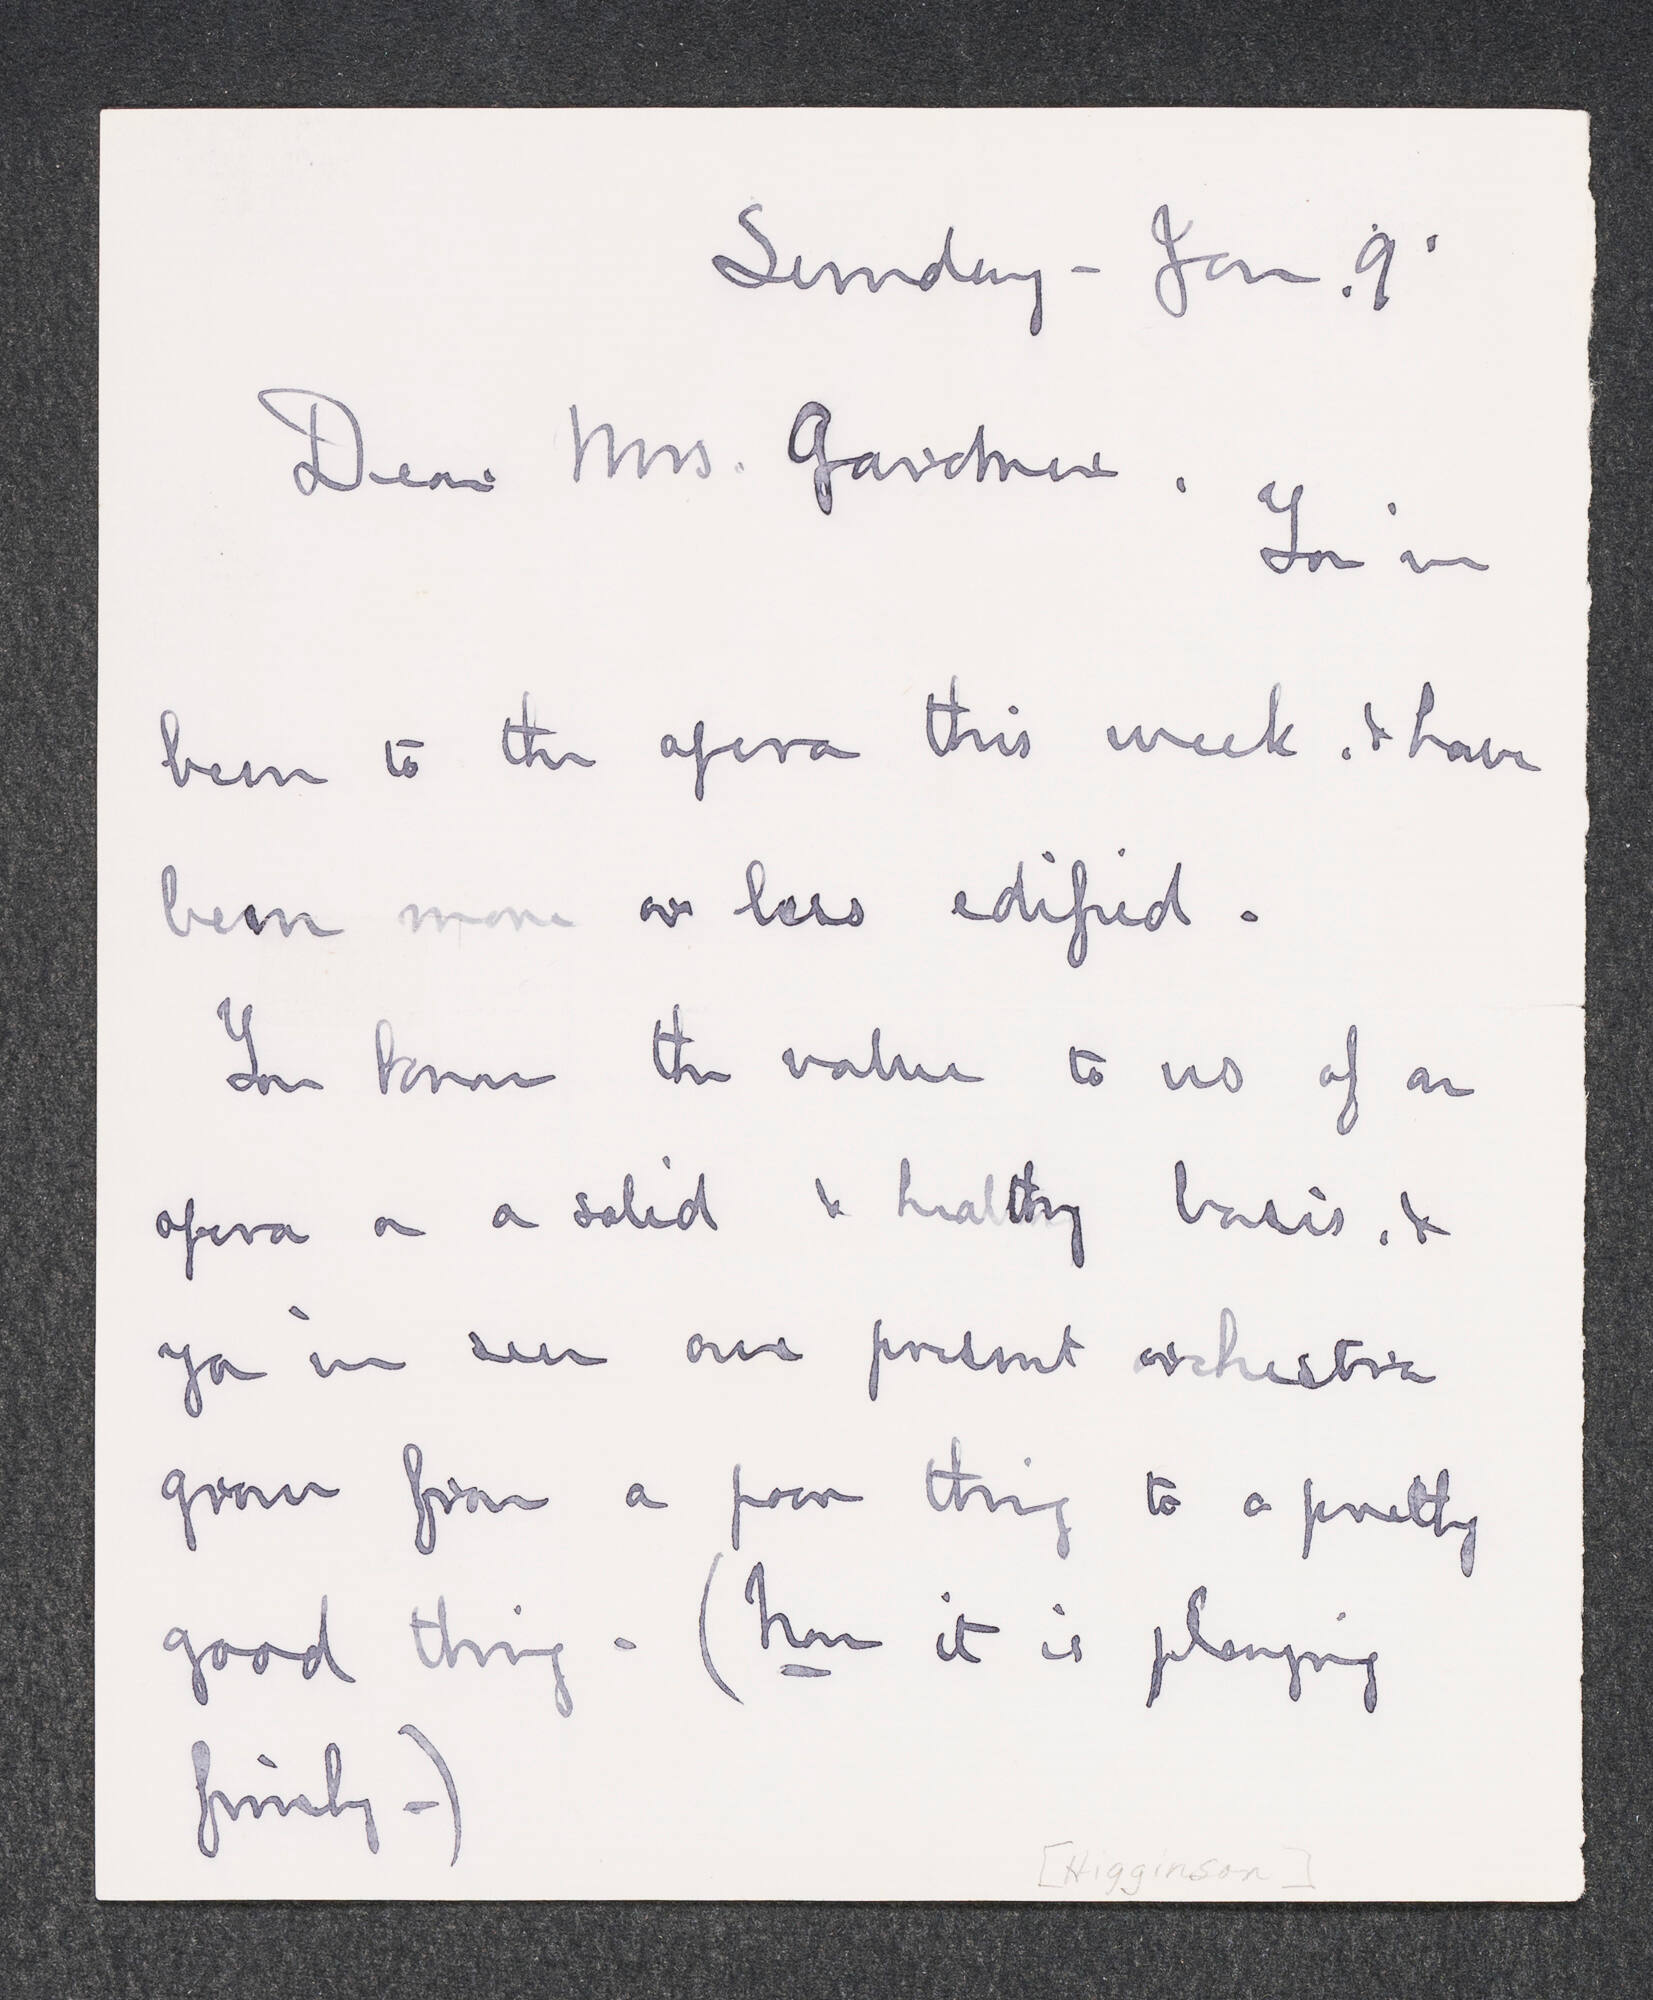 Sunday - Jan. 9.
Dear Mrs. Gardner.
You've
been to the opera this week. & have
been more or less edified.
You know the value to us of an
opera on a solid & healthy basis. &
you've seen our present orchestra
grow from a poor thing to a pretty
good thing - (how it is playing
finely -)
[Higginson]